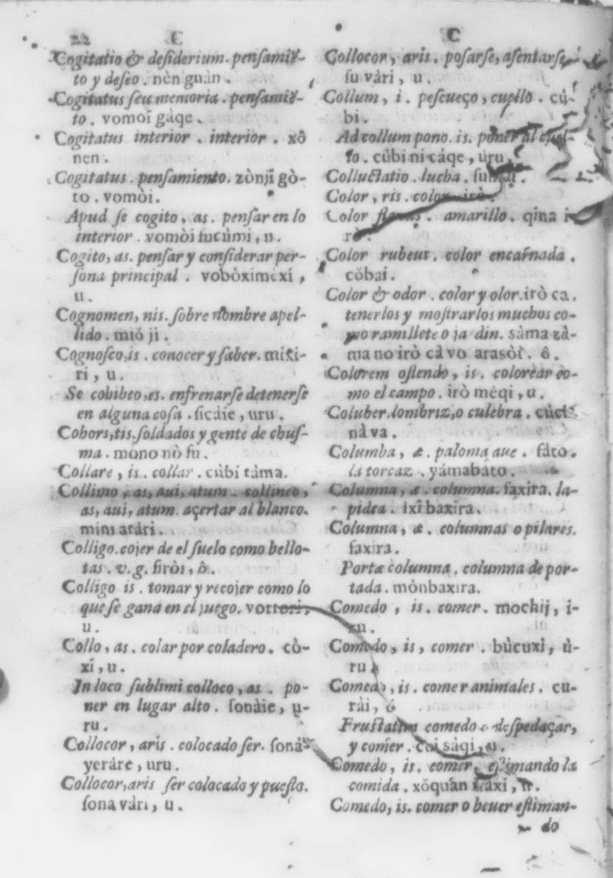 22 C
Cogitatio & desiderium. pensamiē-
to y deseo. nèn guàn.
Cogitatus seu memoria. pensamiē-
to. vomoi gàqe.
Cogitatus interior. interior. xô
nen.
Cogitatus. pensamiento. zònji gò-
to. vomòi.
Apud se cogito, as. pensar en lo
interior. vomòi fucùmi, u.
Cogito, as. pensar y considerar per-
sona principal. vobòximexi,
u.
Cognomen, nis. sobre nombre apel-
lido. mió ji.
Cognosco, is. conocer y saber. mixi-
ri, u.
Se cohibeo, es. enfrenarse detenerse
en alguna cosa. ficàie, uru.
Cohors, tis. soldados y gente de chus-
ma. mono no fu.
Collare, is. collar. cùbi tàma.
Collimo, as, aui, atum. collineo,
as, aui, atum. açertar al blanco.
mim atàri.
Colligo. cojer de el suelo como bello-
tas. v.g. firòi, ô.
Colligo is. tomar y recojer como lo
que se gana en el juego. vottori,
u.
Collo, as. colar por coladero. cò-
xi, u.
In loco sublimi colloco, as. po-
ner en lugar alto. sonàie, u-
ru.
Collocor, aris. colocado ser. sonà-
yeràre, uru.
Collocor, aris ser colocado y puesto.
sona vàri, u.
C
Collocor, aris. posarse, asentarse.
su vàri, u.
Collum, i. pescueço, cuello. cù-
bi.
Ad collum pono. is. poner al cuel-
lo. cùbi ni càqe, uru.
Colluctatio. lucha.
Color, ris. color. irò.
Color flauus. amarillo. qina i-
ro.
Color rubeus. color encarnada.
còbai.
Color & odor. color y olor. irò ca.
tenerlos y mostrarlos muchos co-
mo ramillete o jardin. sàma zà-
ma no irò cà vo arasòi. ô.
Colorem ostendo, is. colorèar co-
mo el campo. irò mèqi, u.
Coluber. lombriz, o culebra. cùchi
nàva.
Columba, æ. paloma aue. fàto.
la torcaz. yàmabàto.
Columna, æ. columna. faxira. la-
pidea. ixi baxira.
Columna, æ. columnas o pilares.
faxira.
Portæ columna. columna de por-
tada. mònbaxira.
Comedo, is. comer. mochij, i-
ru.
Comedo, is, comer. bùcuxi, ù-
ru.
Comedo, is. comer animales. cu-
rài, ô
Frustatim comedo. despedaçar,
y comer. cui sàqi, u.
Comedo, is. comer, estimando la
comida. xôquàn itàxi, u.
Comedo, is. comer o beuer estiman-
do